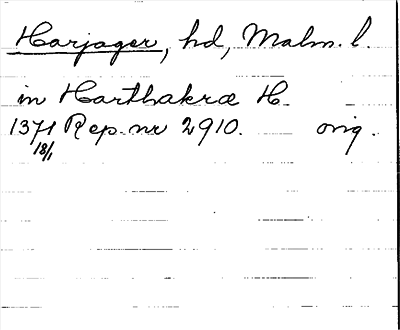 Harjager, hd, Malm. l.
in Harthakræ H.
1371 Rep. nr 2910. orig.
18/1